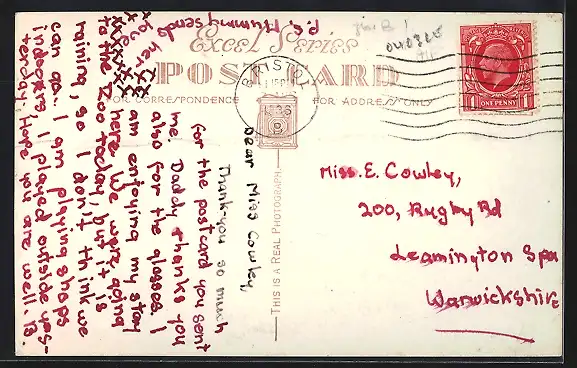 Excel Series
POST CARD
FOR CORRESPONDENCE
FOR ADDRESS ONLY
THIS IS A REAL PHOTOGRAPH.
BRISTOL
ONE PENNY
1 1
Dear Miss Cowley,
Thank-you so much
for the postcard you sent
me. Daddy thanks you
also for the glasses. I
am enjoying my stay
here. We were going
to the Zoo today, but it's
raining, so I don't think we
can go. I am playing shops
indoors. I played outside yes-
terday. Hope you are well.
love
xxxx
P.S. Mummy sends
love
Miss. E. Cowley,
200, Rugby Rd
Leamington Spa
Warwickshire